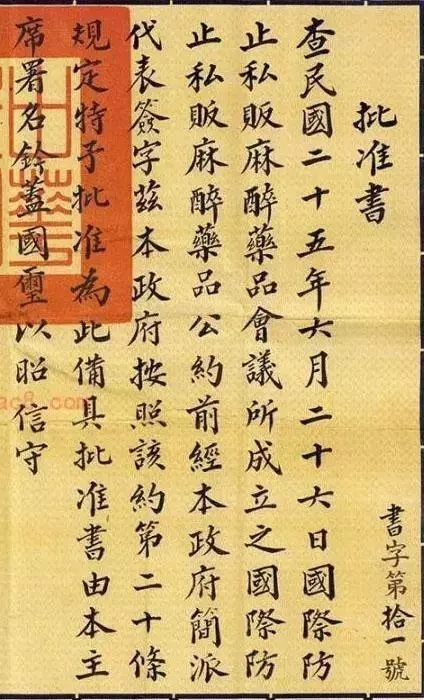 書字第拾一號
批准書
查民國二十五年六月二十六日國際防
止私販麻醉藥品會議所成立之國際防
止私販麻醉藥品公約前經本政府簡派
代表簽字茲本政府按照該約第二十條
規定特予批准為此備具批准書由本主
席署名鈐蓋國璽以昭信守